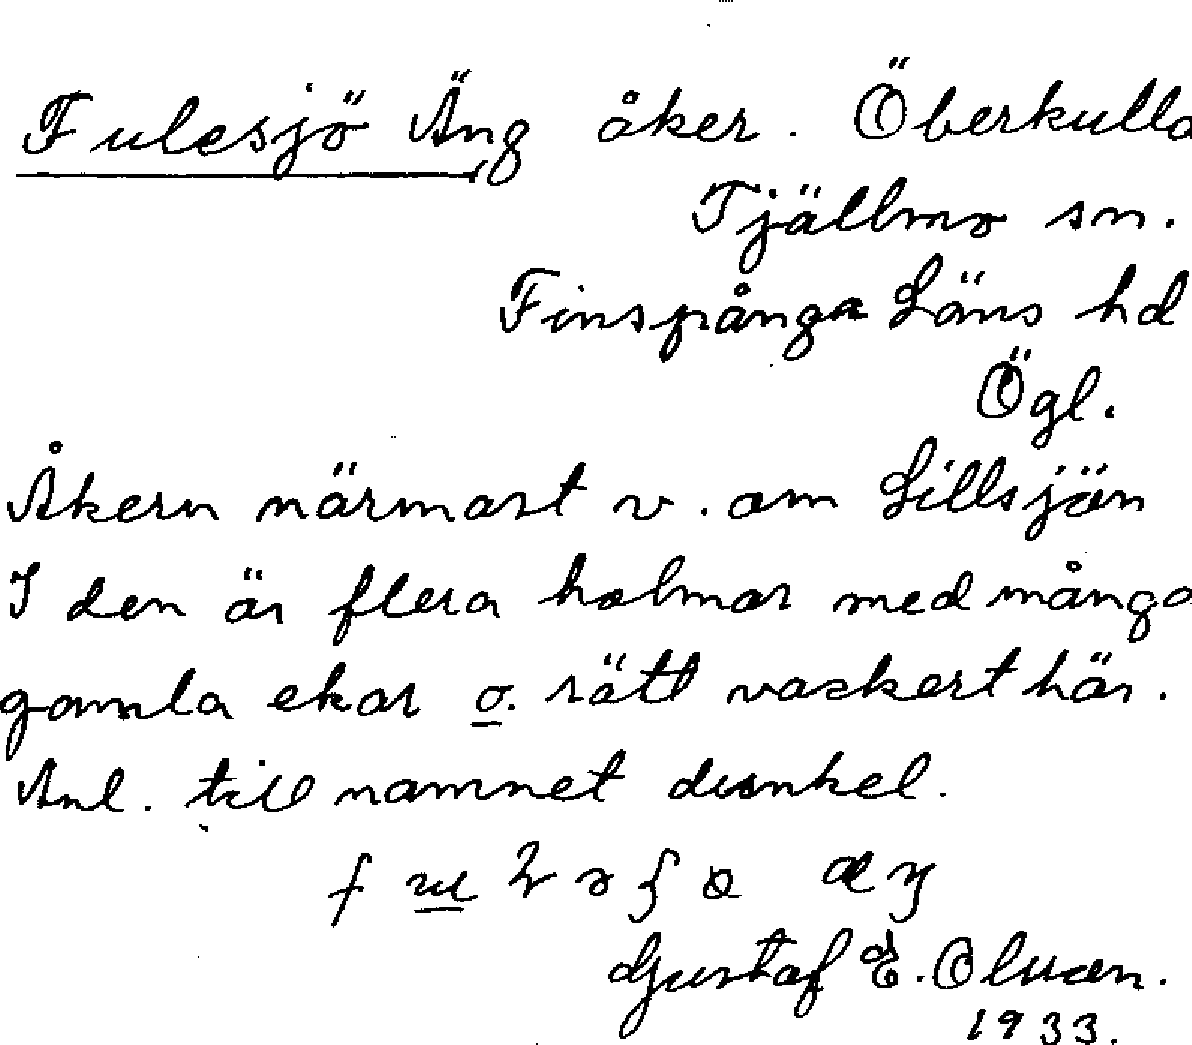 Fulesjö Äng åker. Öberkulla
Tjällmo sn.
Finspånga Läns hd
Ögl.
Åkern närmast v. om Lillsjön
I den är flera holmar med många
gamla ekar o. rätt vackert här.
Anl. till namnet dunkel.
Gustaf E. Olsson.
1933.